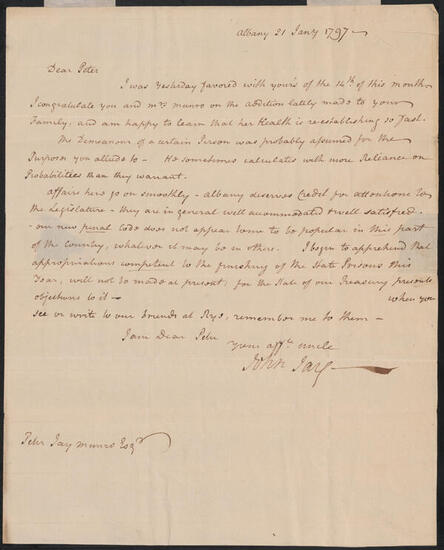 Albany 21 Jany 1797 —
Dear Peter
I was Yesterday favored with yours of the 14th. of this month
I congratulate you and mrs. munro on the addition lately made to your
Family, and am happy to learn that her Health is re-establishing so fast.
The Demeanour of a certain Person was probably assumed for the
Purposes you allude to — He sometimes calculates with more Reliance on
Probabilities than they warrant.
affairs here go on smoothly — Albany deserves Credit for attentions to
the Legislature — they are in general well accommodated & well satisfied.
our new penal Code does not appear to me to be popular in this part
of the Country, whatever it may be in others. I begin to apprehend that
appropriations competent to the finishing of the State Prisons this
Year, will not be made at present; for the State of our Treasury presents
objections to it — when you
see or write to our Friends at Rye, remember me to them —
I am Dear Peter
Your affte. uncle
John Jay
Peter Jay Munro Esqr.